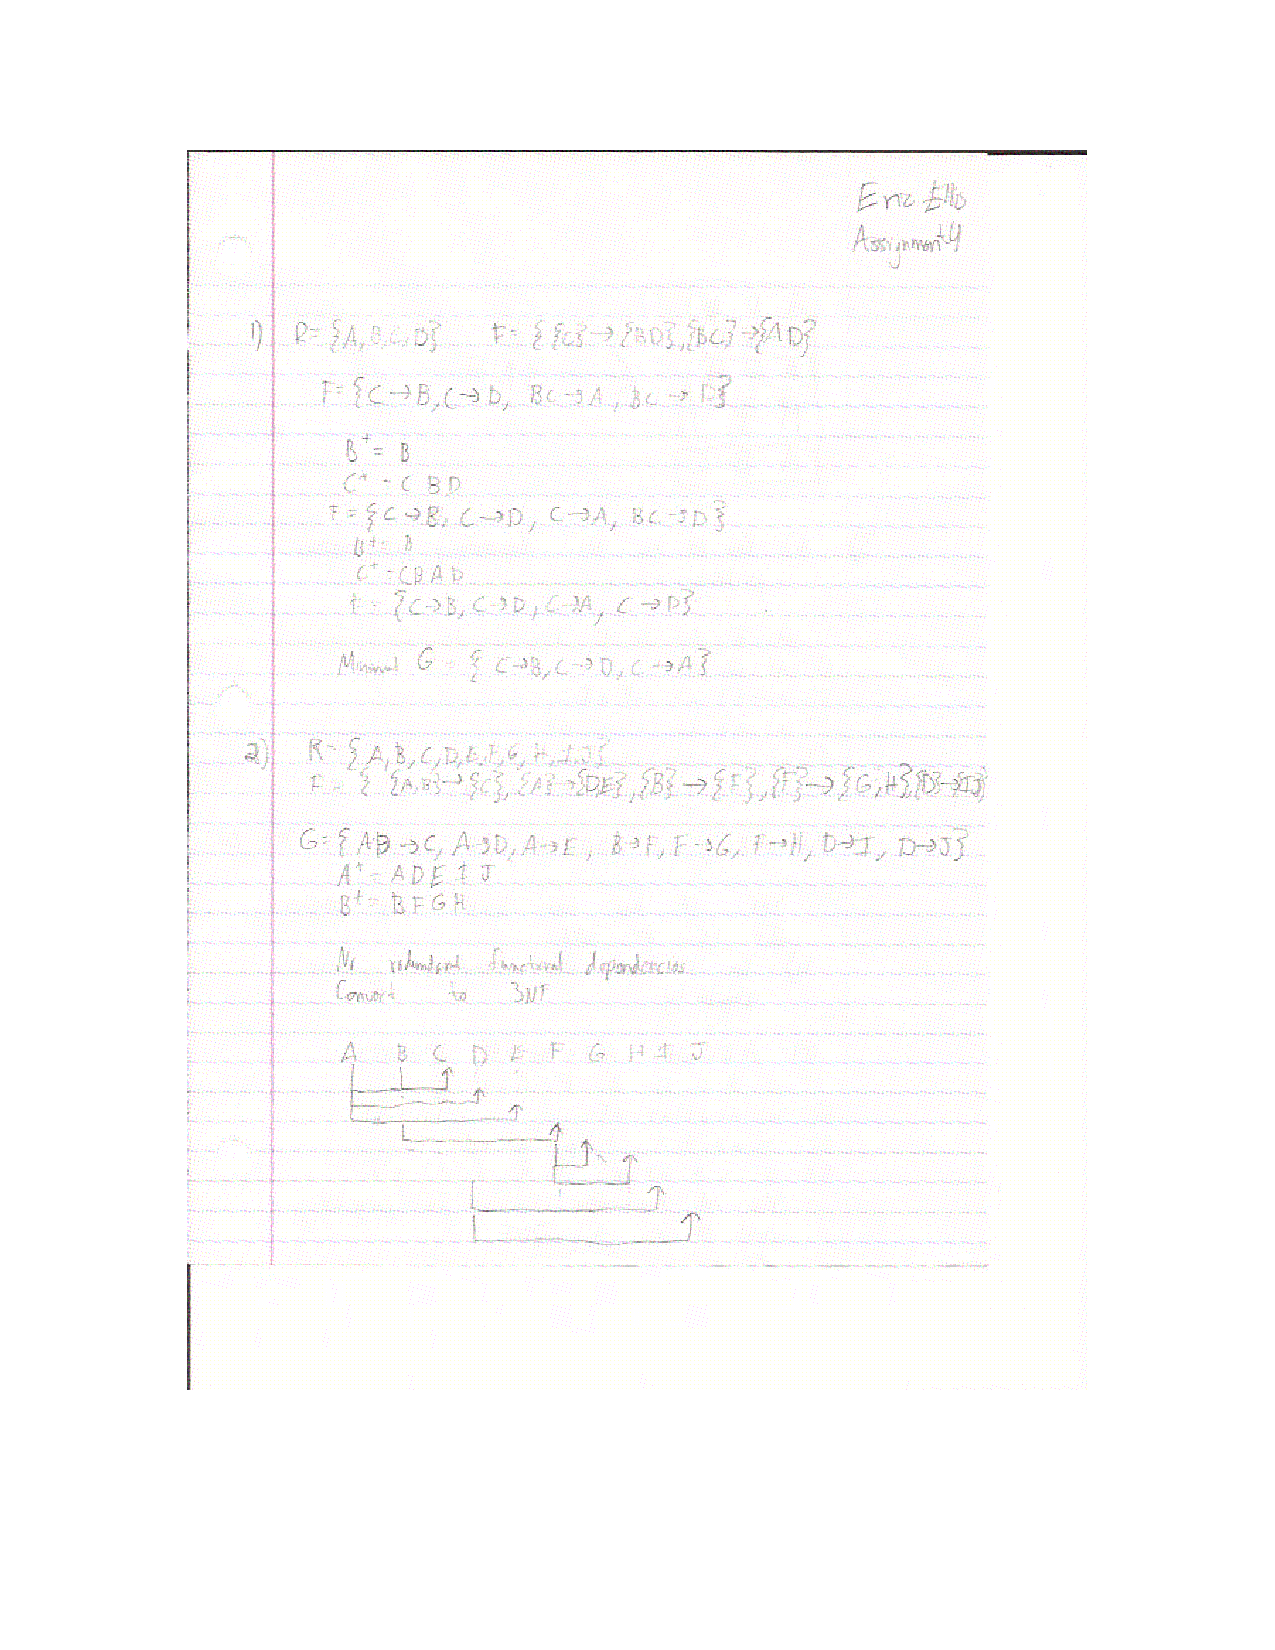 Eric
Assignment 4
1) R= {A, B, C, D} F= { {C} → {BD}, {BC} → {AD}
F= {C → B, C → D, BC → A, BC → D}
B+ = B
C+ = C B D
F = {C → B, C → D, C → A, BC → D}
B+ = B
C+ = C B A D
F = {C → B, C → D, C → A, C → D}
Minimal G = { C → B, C → D, C → A}
2) R= { A, B, C, D, E, F, G, H, I, J}
F = { {A,B} → {C}, {A} → {DE}, {B} → {F}, {F} → {G, H}, {D} → {IJ}
G= { AB → C, A → D, A → E, B → F, F → G, F → H, D → I, D → J}
A+ = A D E I J
B+ = B F G H
No redundant functional dependencies
Convert to 3NF
A B C D E F G H I J